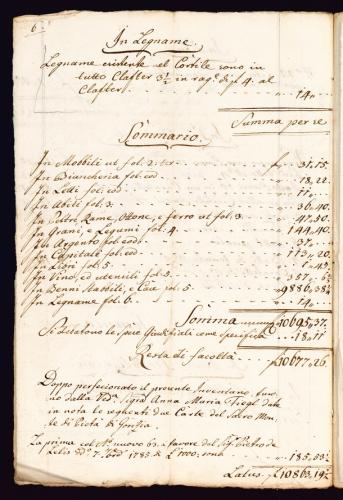 6.
In Legname.
Legname esistente nel Cortile sono in
tutto Clafter 3½ in rag.e di f 4. al
Clafter 14„
Summa per se
Sommario.
In Mobbili ut fol. 2. ter f 31„15
In Biancheria fol: eod. 18„22
In Letti fol: eod. 11„
In Abiti fol: 3. 36„40
In Peltre, Rame, Ottone, e ferro ut fol: 3. 47„50
In Grani, e Legumi fol: 4. 144„40
In Argento fol: eod. 37„
In Capitali fol: eod. 113„20
In Libri fol: 5.
In Vino, ed utensili fol: 5. 357„
In Benni Stabbili, e Case fol: 5. 9886„38
In Legname fol: 6. 14„
Somma f 10695„37
Si detraono le spese Giudiziali come 18„11
Resta di facoltà f 10677„26
Doppo perfezionato il presente Inventario furo„
no dalla Ved.a Sig.ra Anna Maria date
in nota le seguenti due Carte del Sacro Mon„
te di Pietà di
La prima col N.o nuovo 63. a favore del Sig. Pietro de
Lelis 1785 f 1000„ sono 185„53
Latus f 10863„19